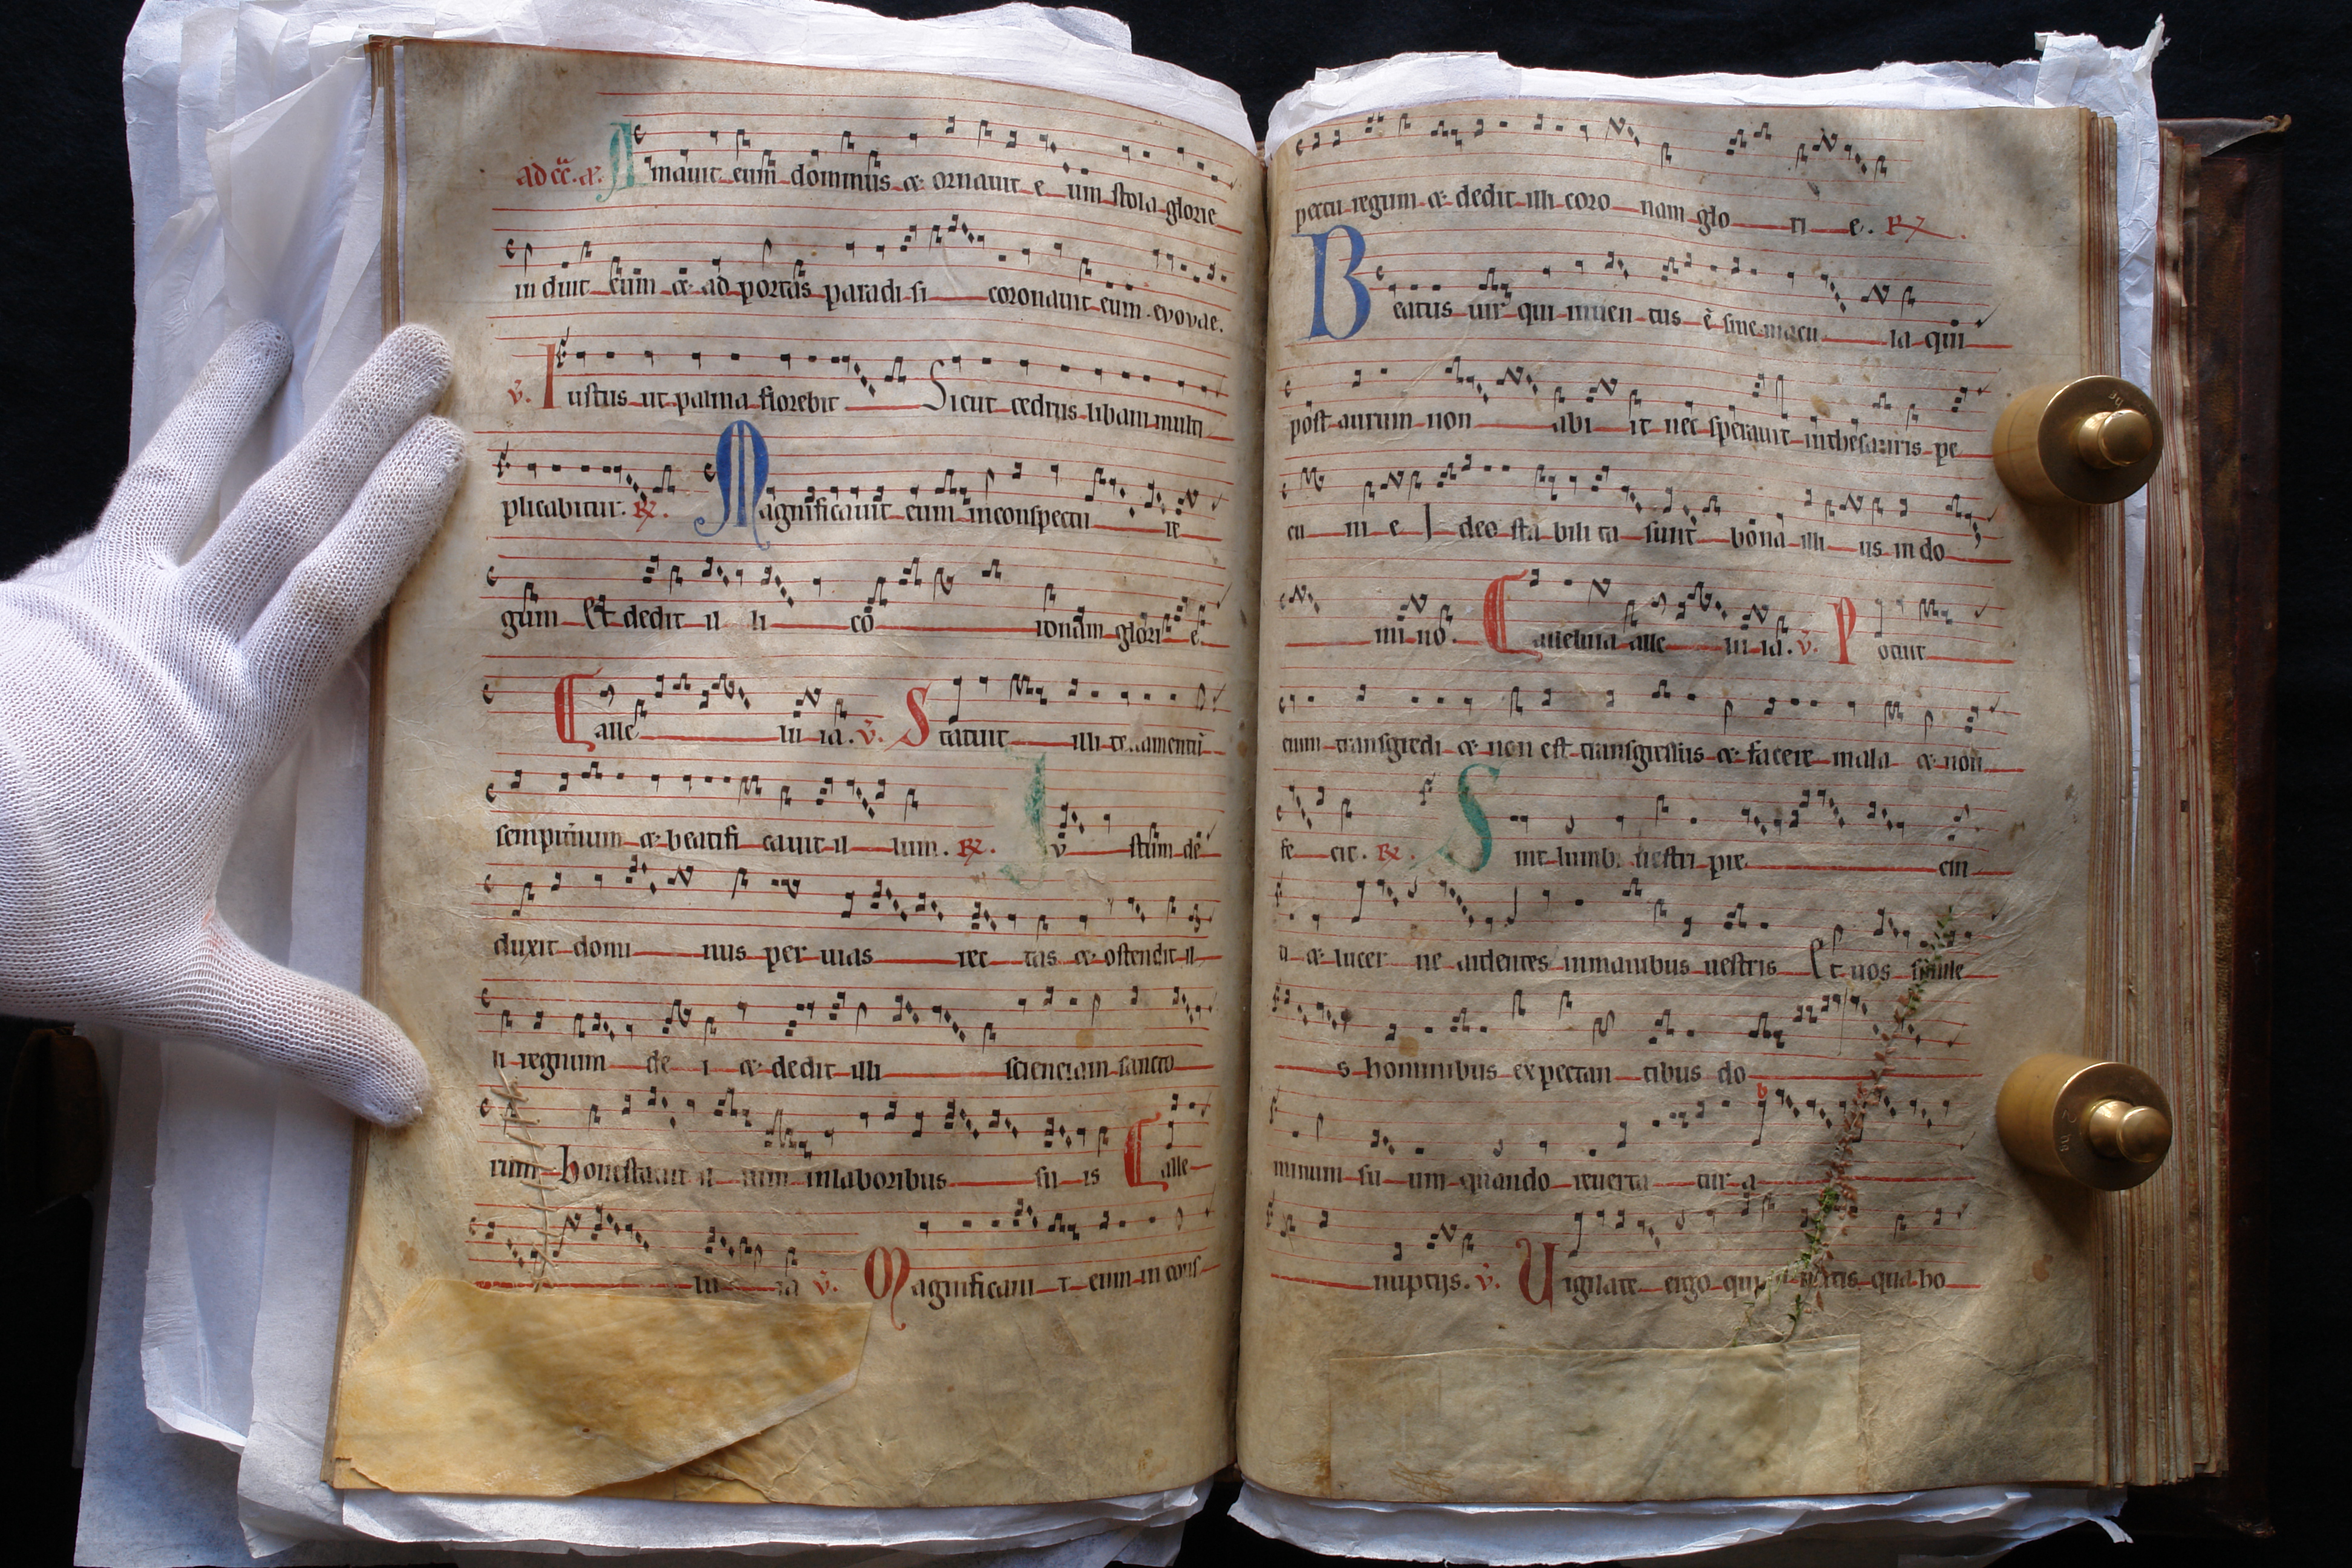 ad cc̄. a. Amauit eum dominus ⁊ ornauit e um stola glorie
in duit eum ⁊ ad portas paradi si coronauit eum evovae.
v̄. Iustus ut palma florebit Sicut cedrus libani multi
plicabitur. R. Magnificauit eum inconspectu re
gum Et dedit il li co ronam glori e.
C alle lu ia. v̄. Statuit illi testamentū
sempitnum ⁊ beatifi cauit il lum. R. Iv stum de
duxit domi nus per uias rec tas ⁊ ostendit il
li regnum de i ⁊ dedit illi scienciam sancto
rum honestauit il lum inlaboribus su is C alle
lu ia v̄. Magnificaui t eum in cons
pectu regum ⁊ dedit illi coro nam glo ri e. R
Beatus uir qui inuen tus ē sine macu la qui
post aurum non abi it nec sperauit inthesauris pe
cu ni e I deo sta bili ta sunt bona illi us in do
mi no. C alleluia alle lu ia. v̄. Potuit
enim transgredi ⁊ non est transgressus ⁊ facere mala ⁊ non
fe cit. R. Sint lumbi uestri pre cin
ti ⁊ lucer ne ardentes inmanibus uestris Et uos simile
s hominibus expectan tibus do
minum su um quando reuerta tur a
nuptijs. v̄. Uigilate ergo quia nescitis qua ho